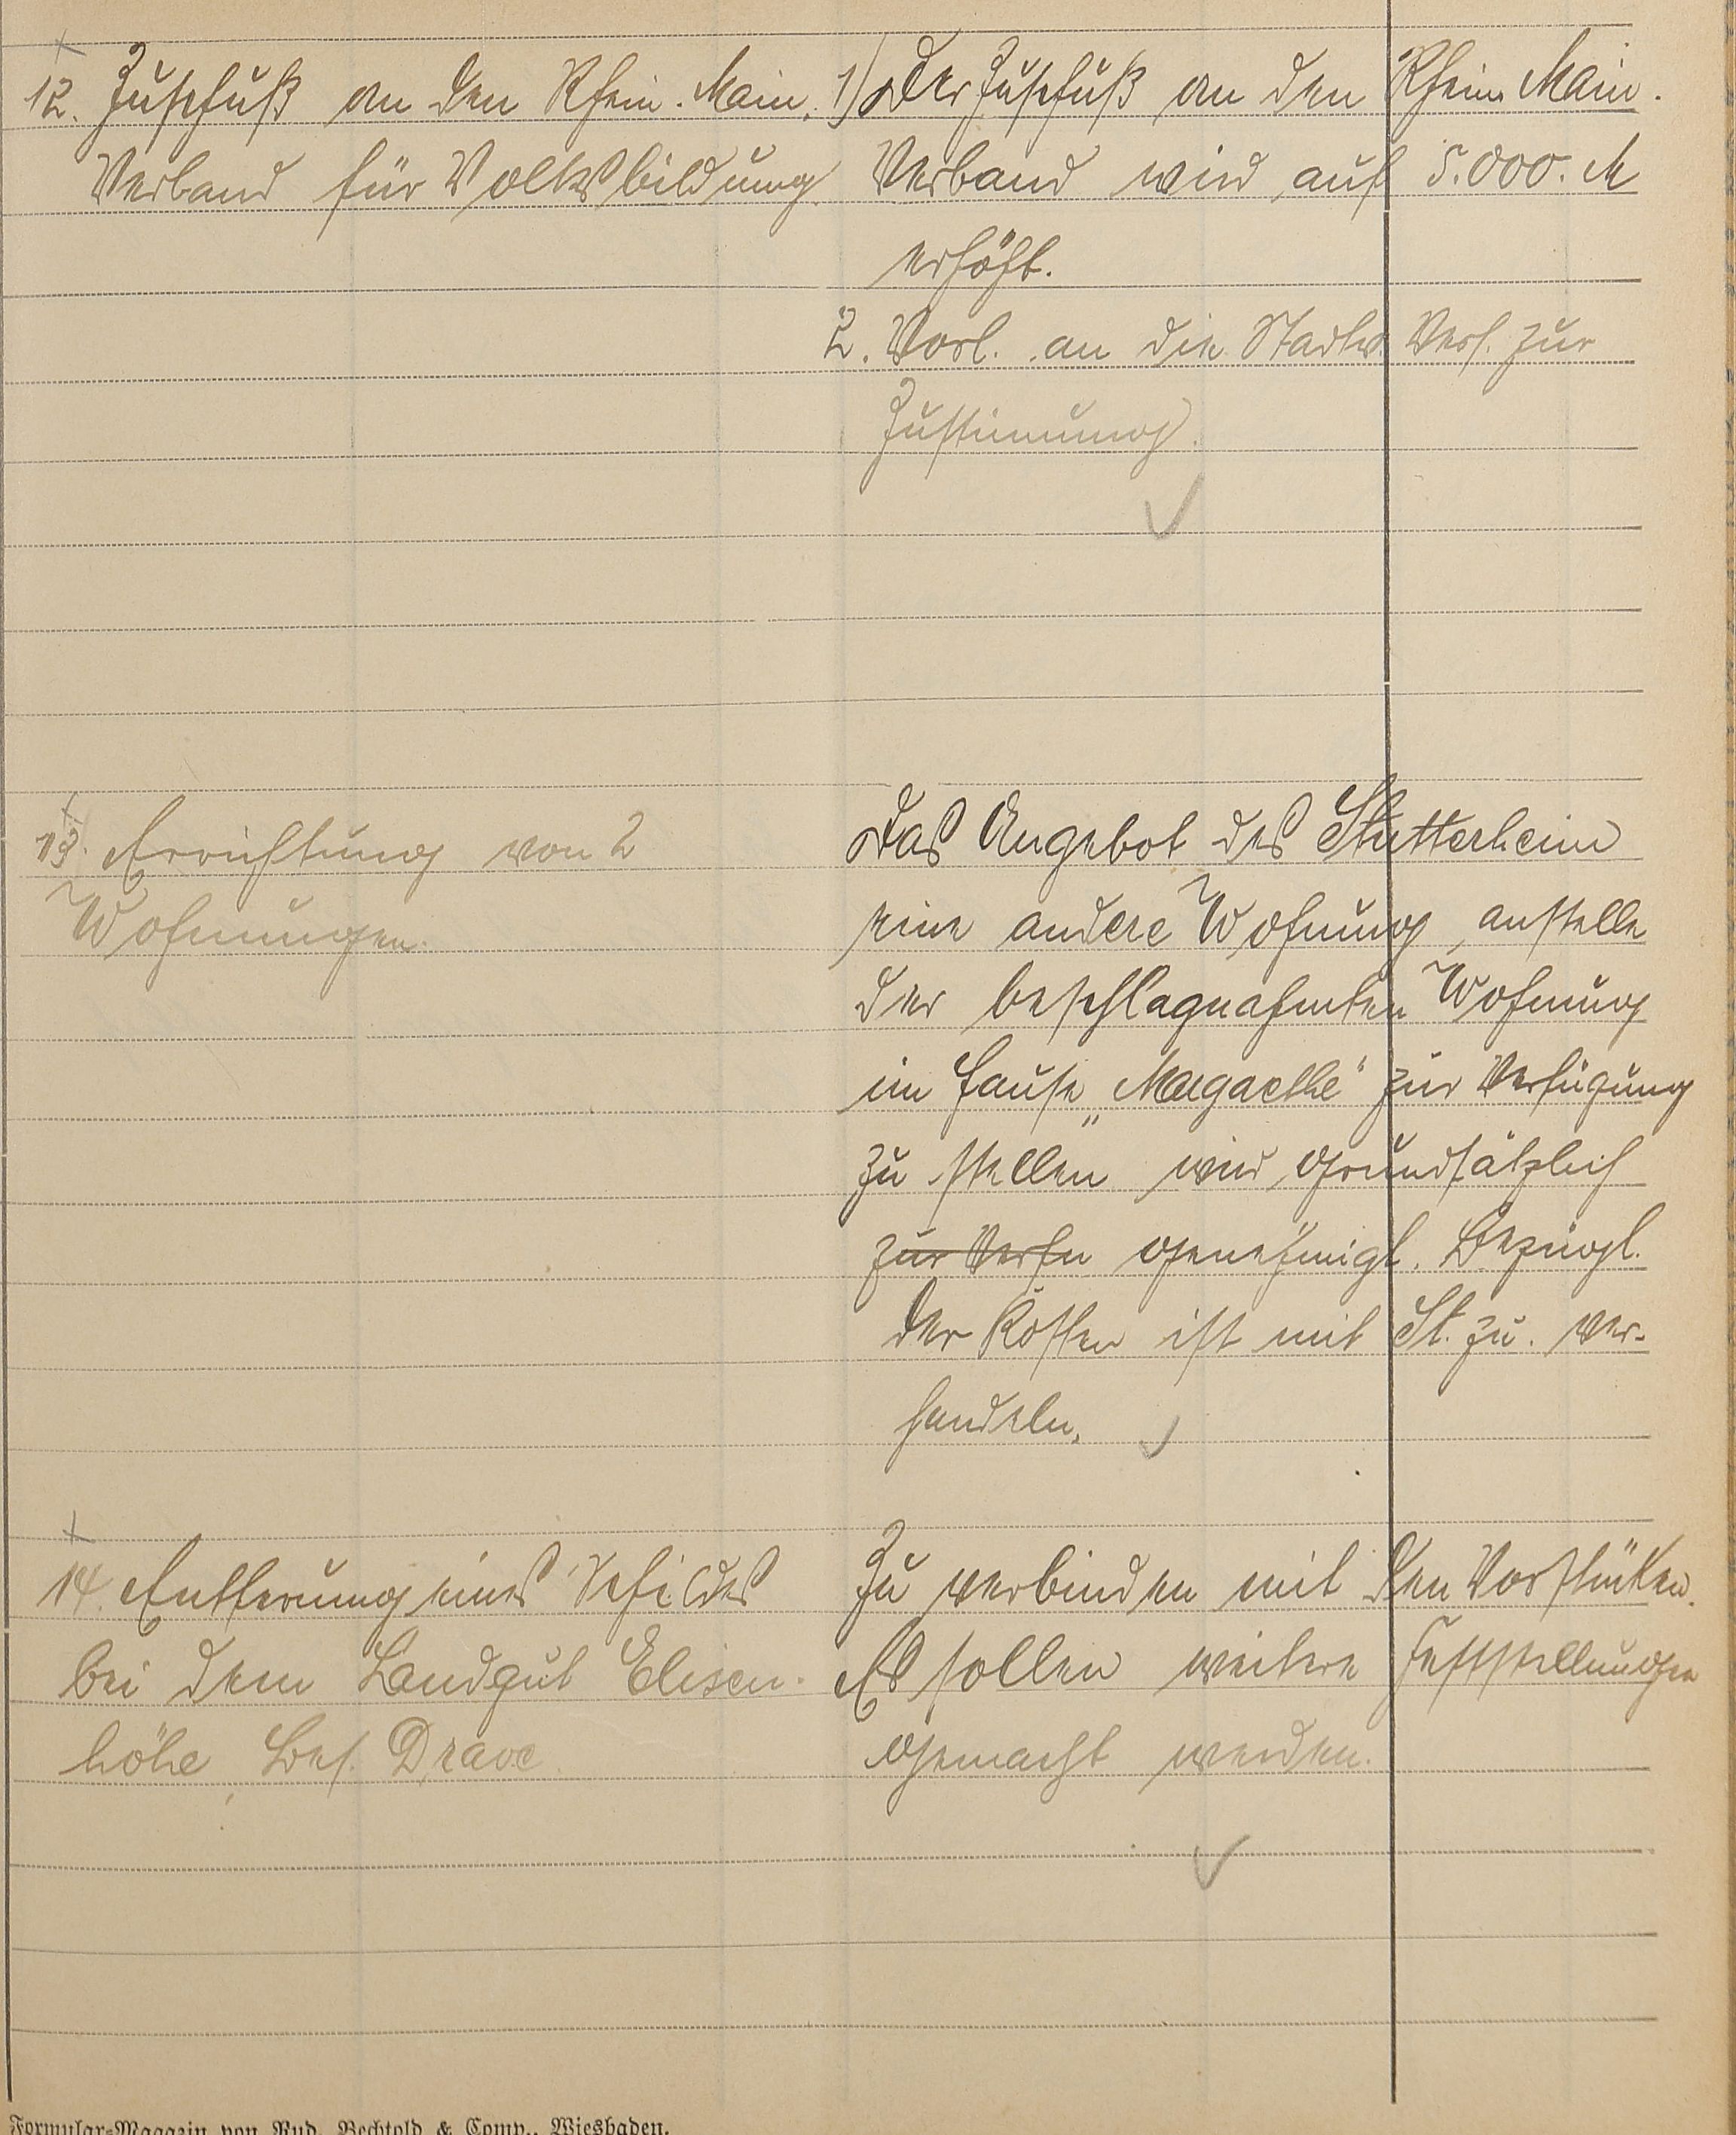 12. Zuschuß an den Rhein-Main-
Verband für Volksbildung.
1) Der Zuschuß an den Rhein-Main-
Verband wird auf 5.000. M
erhöht.
2. Vorl. an die Stadtv. Vers. zur
Zustimmung.
13. Errichtung von 2
Wohnungen.
Das Angebot des Stutterheim
eine andere Wohnung anstelle
der beschlagnahmten Wohnung
im Hause „Margarethe" zur Verfügung
zu stellen wird grundsätzlich
zur Verfu genehmigt. Bezügl.
der Kosten ist mit St. zu ver-
handeln.
14. Entfernung eines Schildes
bei dem Landgut Elisen-
höhe, Bes. Drave
Zu verbinden mit den Vorstücken.
Es sollen weitere Feststellungen
gemacht werden.
Formular-Magazin von Rud. Bechtold & Comp., Wiesbaden.